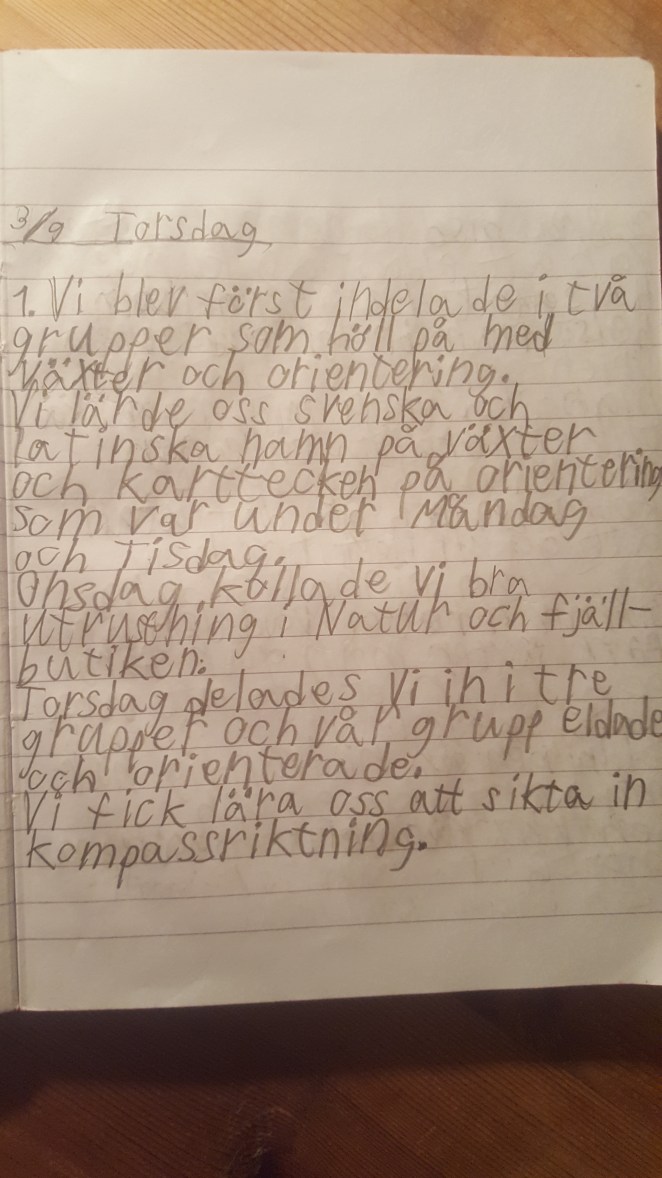 3/9 Torsdag
1. Vi blev först indelade i två
grupper som höll på med
växter och orientering.
Vi lärde oss svenska och
latinska namn på växter
och karttecken på orientering
som var under Måndag
och Tisdag.
Onsdag kollade vi bra
utrustning i Natur och fjäll-
butiken.
Torsdag delades vi in i tre
grupper och vår grupp eldade
och orienterade.
Vi fick lära oss att sikta in
kompassriktning.